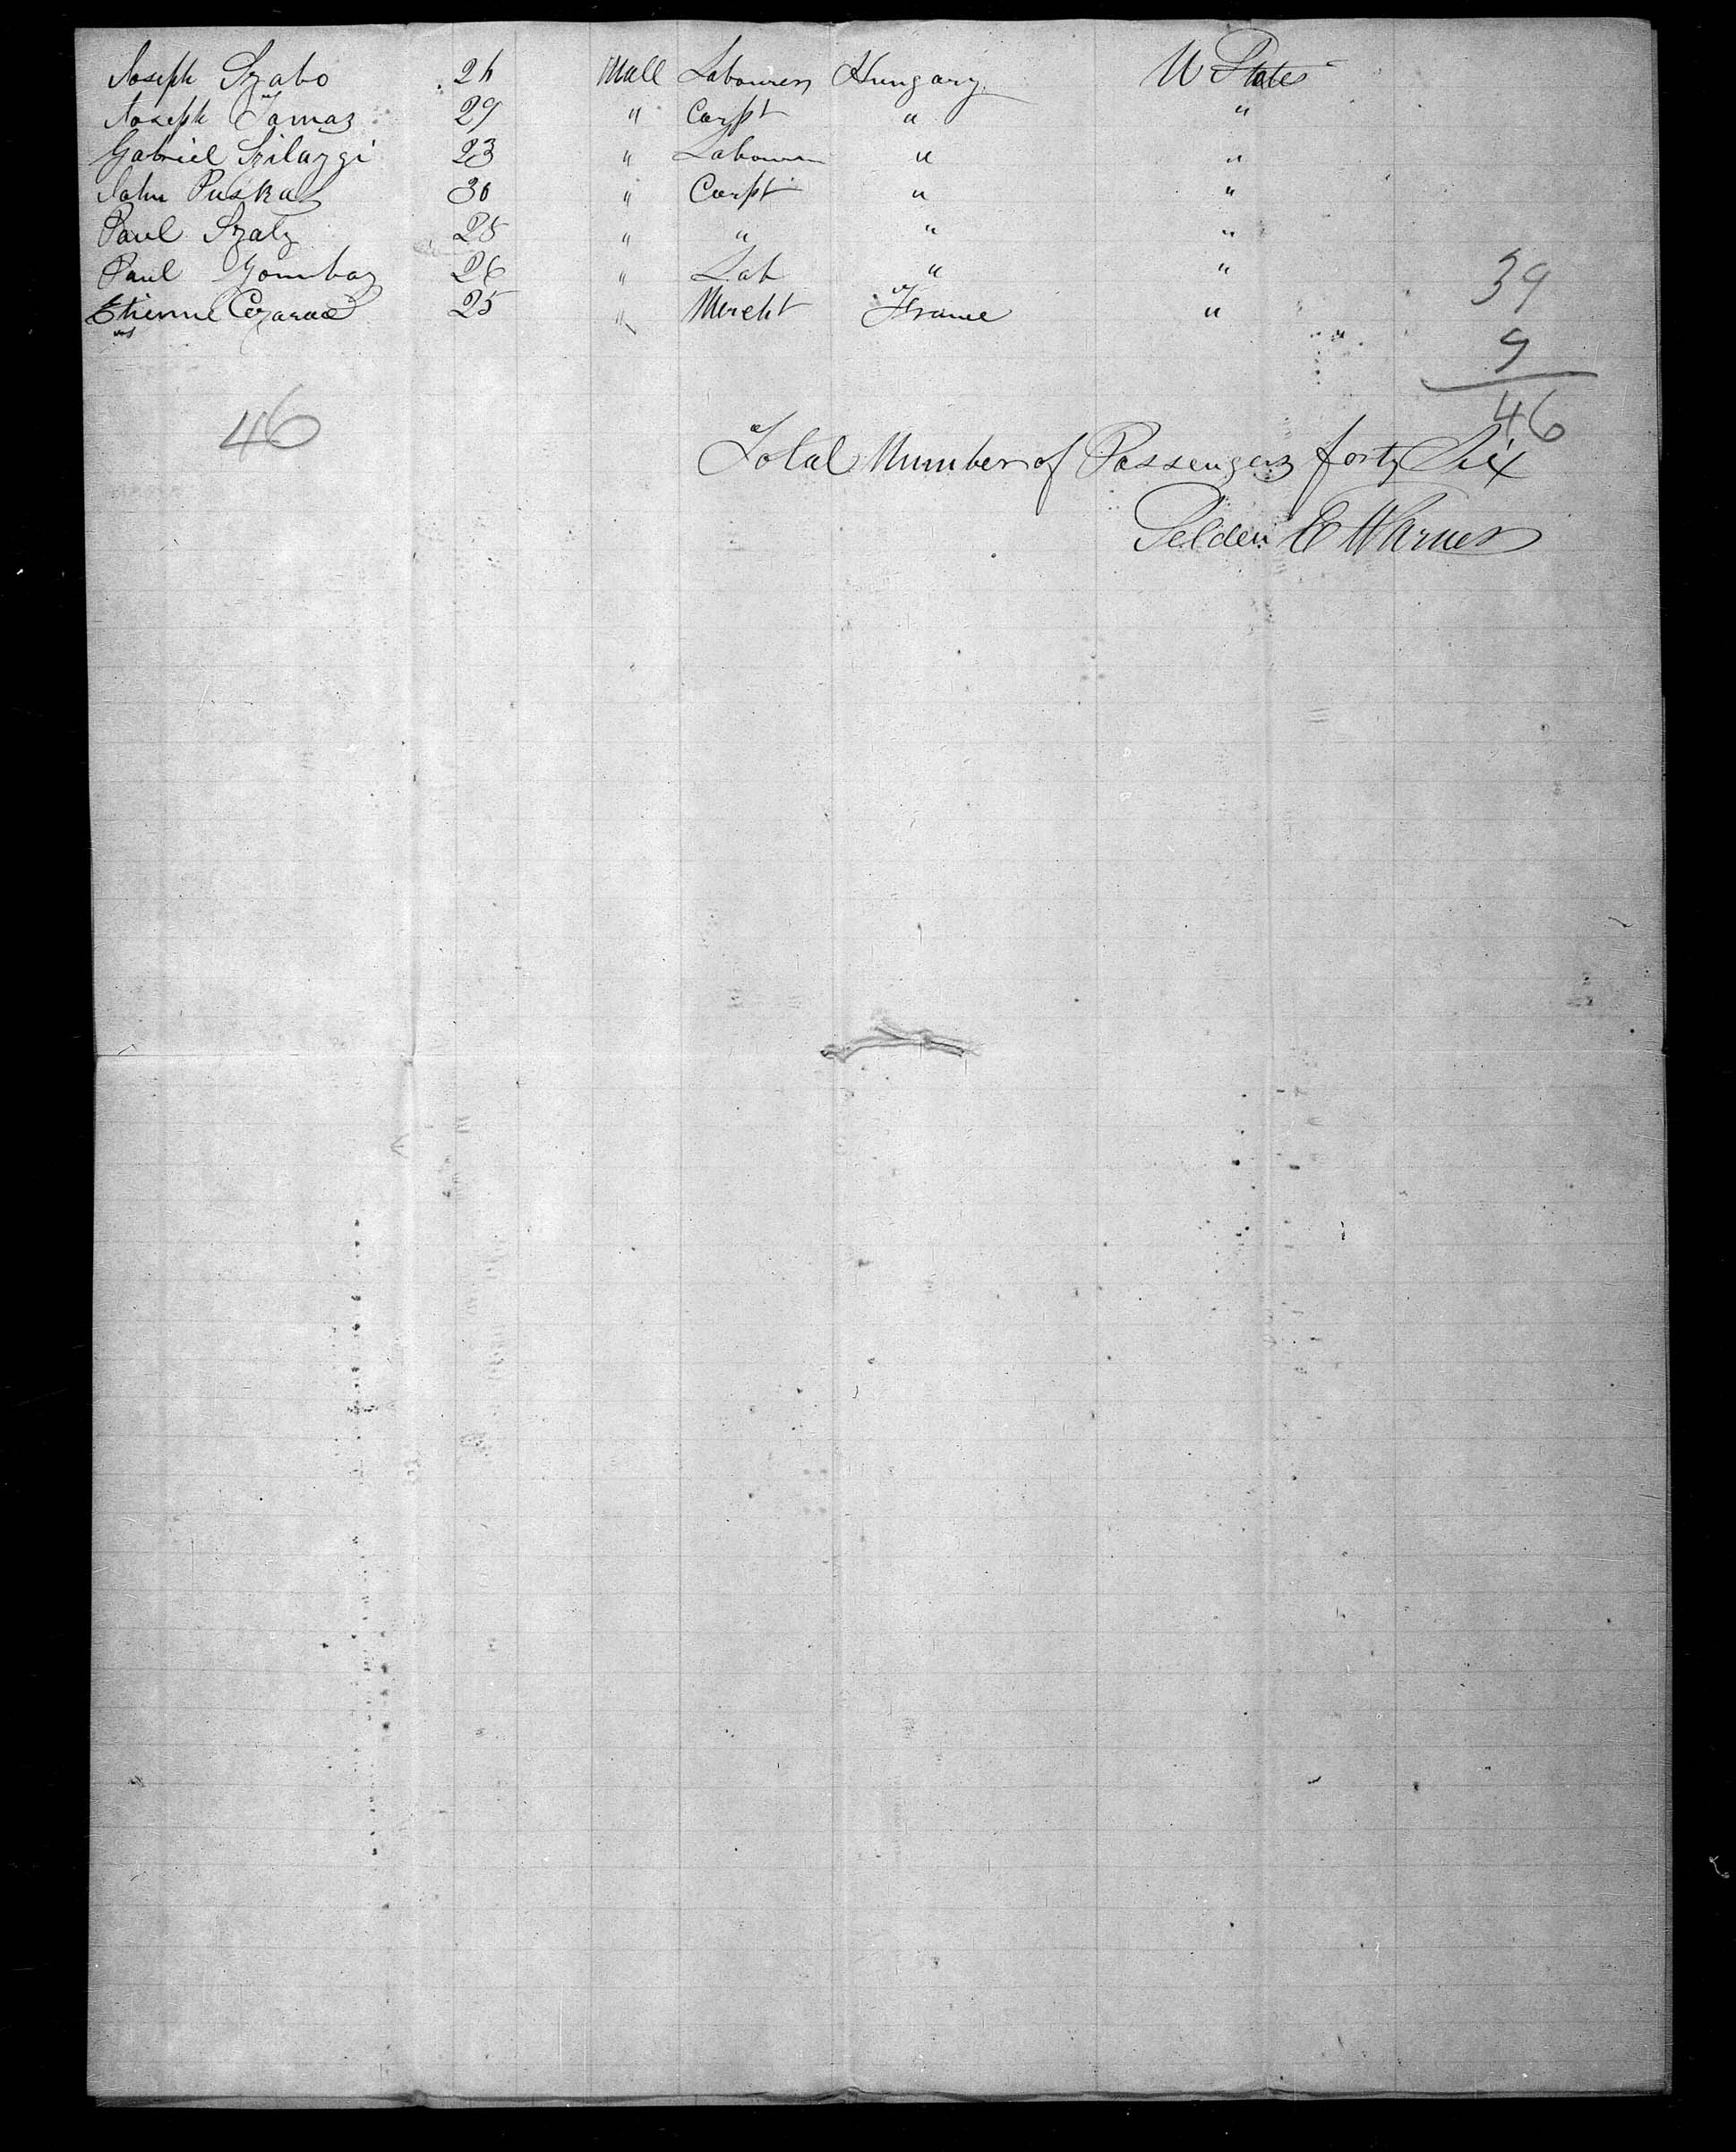 Joseph Szabo 26 Mall Labourer Hungary U States
Joseph Tamas 29 " Carpt " "
Gabriel Szilazgi 23 " Labourer " "
John Puskas 30 " Carpt " "
Paul Szaly 28 " " " "
Paul Gombas 26 " Lab " "
Etienne 25 " Mercht France "
39
9
46
46
Total Number of Passengers forty Six
Selden E Warner